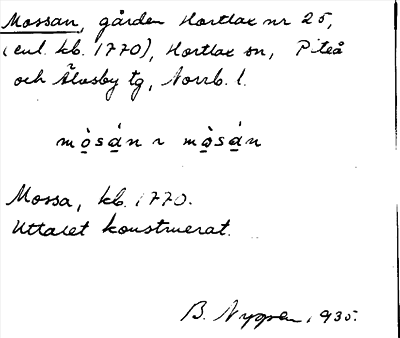 Mossan, gården Hortlax nr 25,
(enl. kb. 1770), Hortlax sn, Piteå
och Älvsby tg, Norrb. l.
mò̱sá̱n ~ mò̱sá̱n
Mossa, kb. 1770.
Uttalet konstruerat.
B. Nygren, 1935.